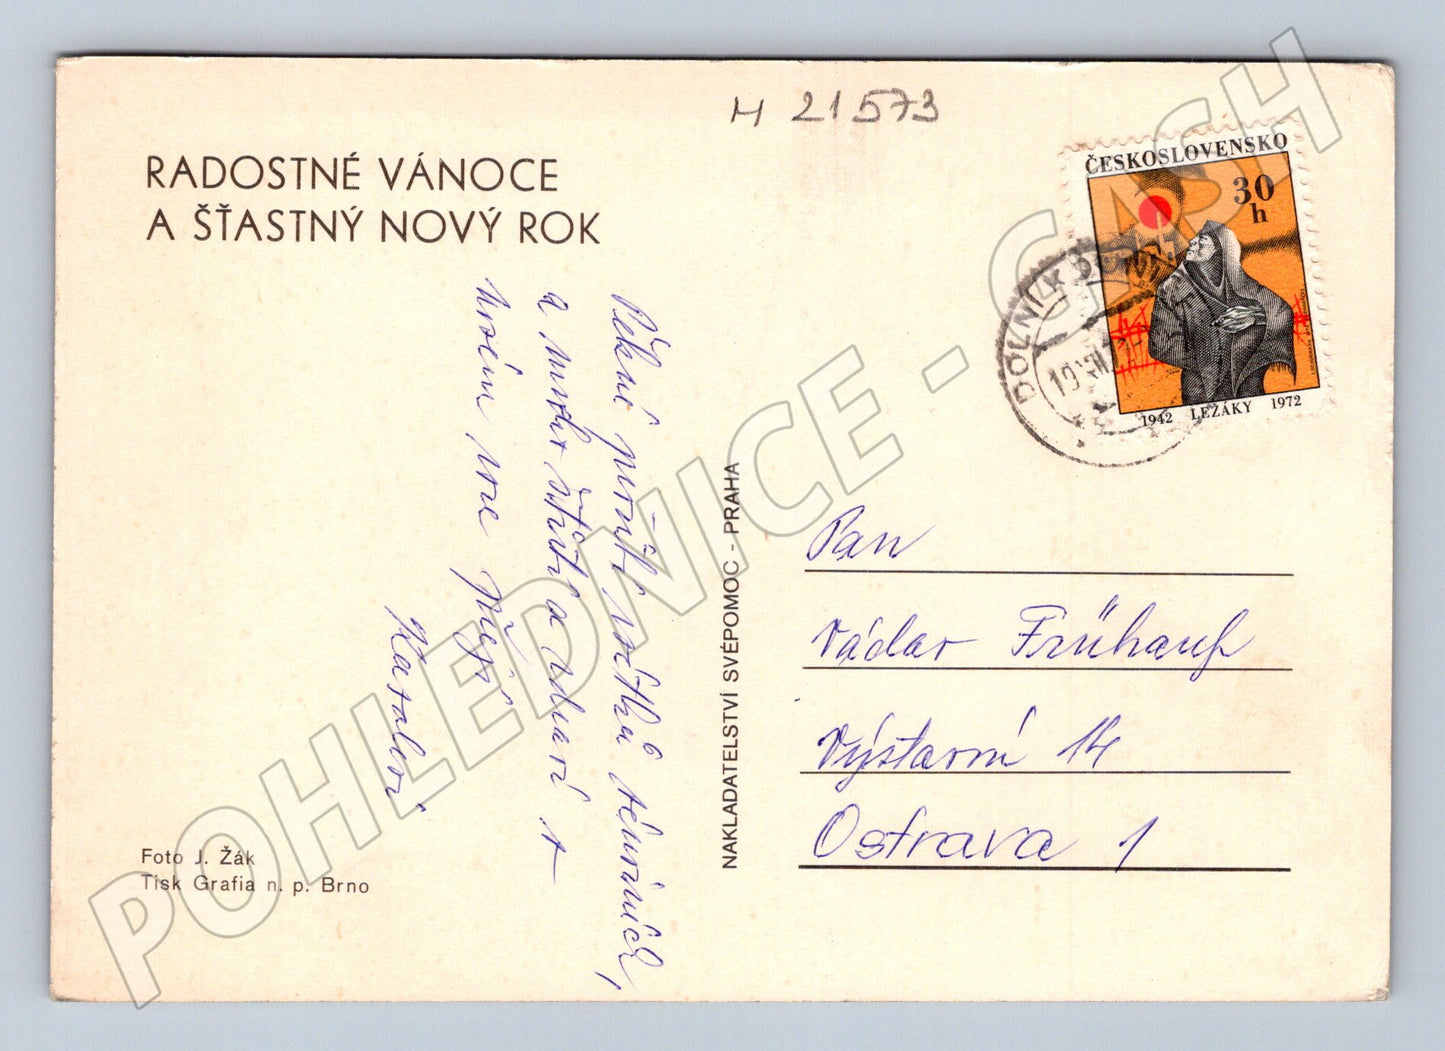 H 21573
RADOSTNÉ VÁNOCE
A ŠŤASTNÝ NOVÝ ROK
ČESKOSLOVENSKO
30
h
1942 LEŽÁKY 1972
DOLNÍ
10.XII.
Pěkné prožití svátků vánočních,
a mnoho štěstí a zdraví v
novém roce přejí
Pan
Václav Frühauf
Výstavní 14
Ostrava 1
NAKLADATELSTVÍ SVÉPOMOC - PRAHA
Foto J. Žák
Tisk Grafia n. p. Brno
POHLEDNICE - CASH